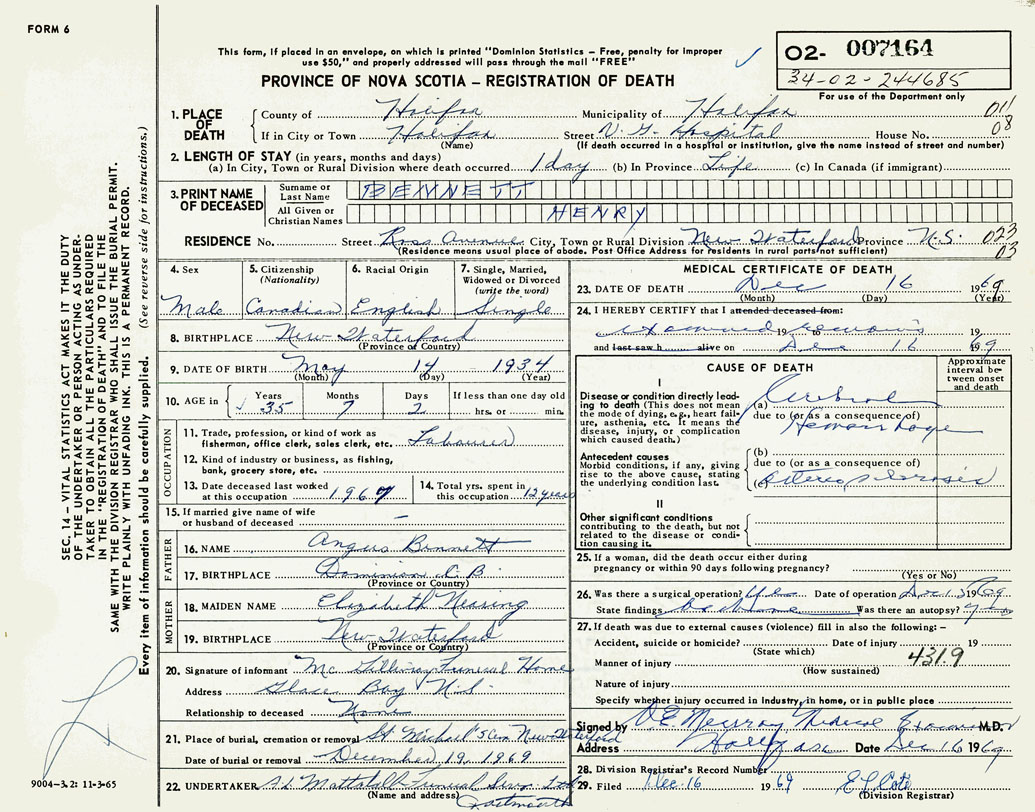 FORM 6
This form, if placed in an envelope, on which is printed "Dominion Statistics – Free, penalty for improper
use $50," and properly addressed will pass through the mail "FREE"
PROVINCE OF NOVA SCOTIA – REGISTRATION OF DEATH
02- 007164
34-02-244685
For use of the Department only
1. PLACE OF DEATH
County of Halifax Municipality of Halifax 011
If in City or Town Halifax Street V. G. Hospital House No. 08
(Name) (If death occurred in a hospital or institution, give the name instead of street and number)
2. LENGTH OF STAY (in years, months and days)
(a) In City, Town or Rural Division where death occurred 1 day (b) In Province Life (c) In Canada (if immigrant)
3. PRINT NAME OF DECEASED
Surname or Last Name BENNETT
All Given or Christian Names HENRY
RESIDENCE No. Street Ross Avenue City, Town or Rural Division New Waterford Province N.S. 023
(Residence means usual place of abode. Post Office Address for residents in rural parts not sufficient) 03
4. Sex Male
5. Citizenship (Nationality) Canadian
6. Racial Origin English
7. Single, Married, Widowed or Divorced (write the word) Single
8. BIRTHPLACE New Waterford
(Province or Country)
9. DATE OF BIRTH May 14 1934
(Month) (Day) (Year)
10. AGE in Years 35 Months 7 Days 2 If less than one day old hrs. or min.
OCCUPATION
11. Trade, profession, or kind of work as
fisherman, office clerk, sales clerk, etc. Labourer
12. Kind of industry or business, as fishing,
bank, grocery store, etc.
13. Date deceased last worked
at this occupation 1967
14. Total yrs. spent in
this occupation 12 years
15. If married give name of wife
or husband of deceased –
FATHER
16. NAME Angus Bennett
17. BIRTHPLACE Dominion C.B.
(Province or Country)
MOTHER
18. MAIDEN NAME Elizabeth Nearing
19. BIRTHPLACE New Waterford
(Province or Country)
20. Signature of informant McGillivray Funeral Home
Address Glace Bay N.S.
Relationship to deceased None
21. Place of burial, cremation or removal St. Michael's Cem New Waterford
Date of burial or removal December 19, 1969
22. UNDERTAKER Mattatall Funeral Serv. Ltd
(Name and address) Dartmouth
MEDICAL CERTIFICATE OF DEATH
23. DATE OF DEATH Dec 16 1969
(Month) (Day) (Year)
24. I HEREBY CERTIFY that I attended deceased from:
examined 19 remains 19
and last saw h alive on Dec 16 1969
CAUSE OF DEATH
Approximate interval between onset and death
I
Disease or condition directly leading to death (This does not
mean the mode of dying, e.g., heart failure, asthenia, etc. It means the
disease, injury, or complication
which caused death.)
(a) Cerebral
due to (or as a consequence of)
Hemorrhage
Antecedent causes
Morbid conditions, if any, giving
rise to the above cause, stating
the underlying condition last.
(b)
due to (or as a consequence of)
(c) Arteriosclerosis
II
Other significant conditions
contributing to the death, but not
related to the disease or condition causing it.
25. If a woman, did the death occur either during
pregnancy or within 90 days following pregnancy?
(Yes or No)
26. Was there a surgical operation? Yes Date of operation Dec 15 1969
State findings Was there an autopsy?
27. If death was due to external causes (violence) fill in also the following: –
Accident, suicide or homicide? Date of injury 19
(State which)
Manner of injury 431.9
(How sustained)
Nature of injury
Specify whether injury occurred in industry, in home, or in public place
Signed by Murray Medical Examiner M.D.
Address Halifax Date Dec 16 1969
28. Division Registrar's Record Number
29. Filed Dec. 16 1969
(Division Registrar)
SEC. 14 – VITAL STATISTICS ACT MAKES IT THE DUTY
OF THE UNDERTAKER OR PERSON ACTING AS UNDER-
TAKER TO OBTAIN ALL THE PARTICULARS REQUIRED
IN THE "REGISTRATION OF DEATH" AND TO FILE THE
SAME WITH THE DIVISION REGISTRAR WHO SHALL ISSUE THE BURIAL PERMIT.
WRITE PLAINLY WITH UNFADING INK. THIS IS A PERMANENT RECORD.
Every item of information should be carefully supplied. (See reverse side for instructions.)
9004–3.2: 11-3-65